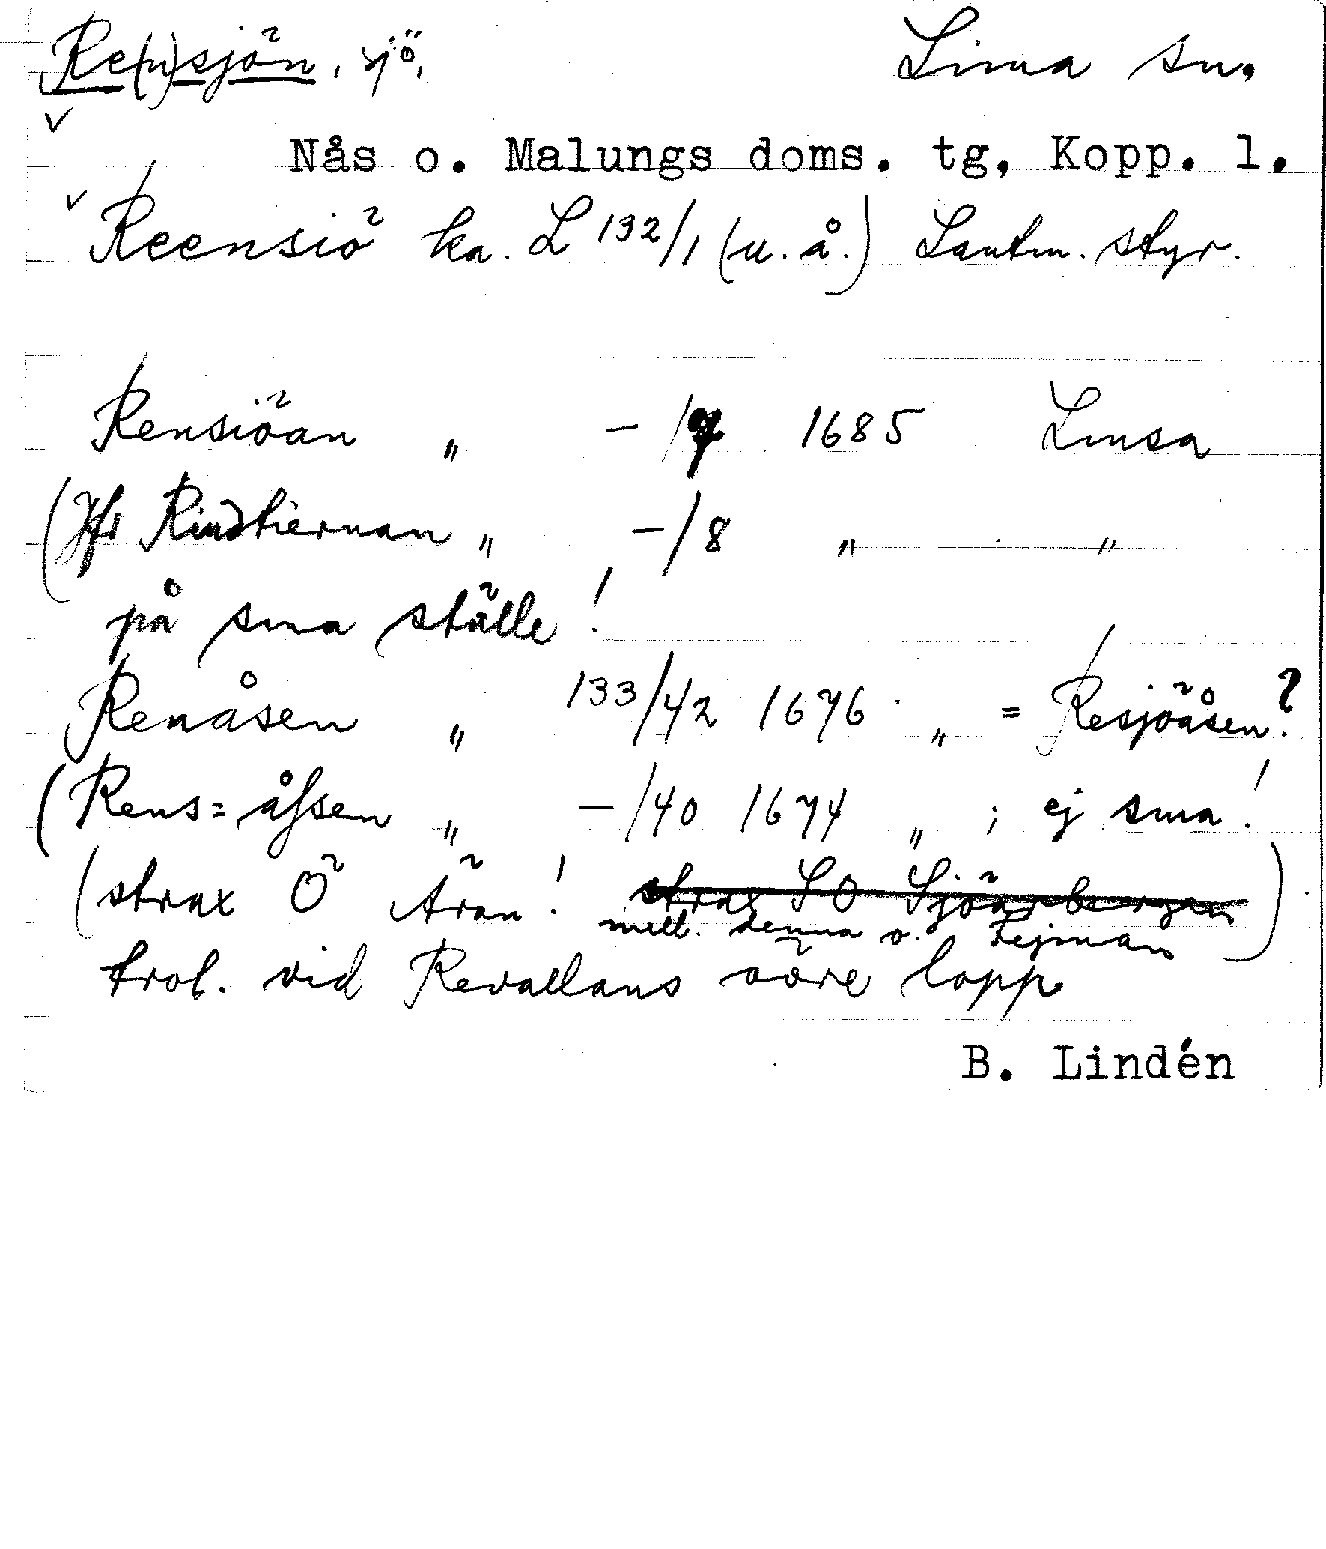 Re(n)sjön, sjö,   Lima sn.
Nås o. Malungs doms. tg, Kopp. l.
Reensiö ka. L 132/1 (u.å.) Lantm. styr.
Rensiöan " -/7 1685 Limsa
(Jfr Rindtiernan " -/8 " "
på sma ställe!
Renåsen " 133/42 1676 " = Resjöåsen?
(Rens=åssen " -/40 1674 " ; ej sma!
(strax Ö Äran! strax SO Sjöarbergen)
mell. denna o. Tejman
trol. vid Revallans övre lopp
B. Lindén